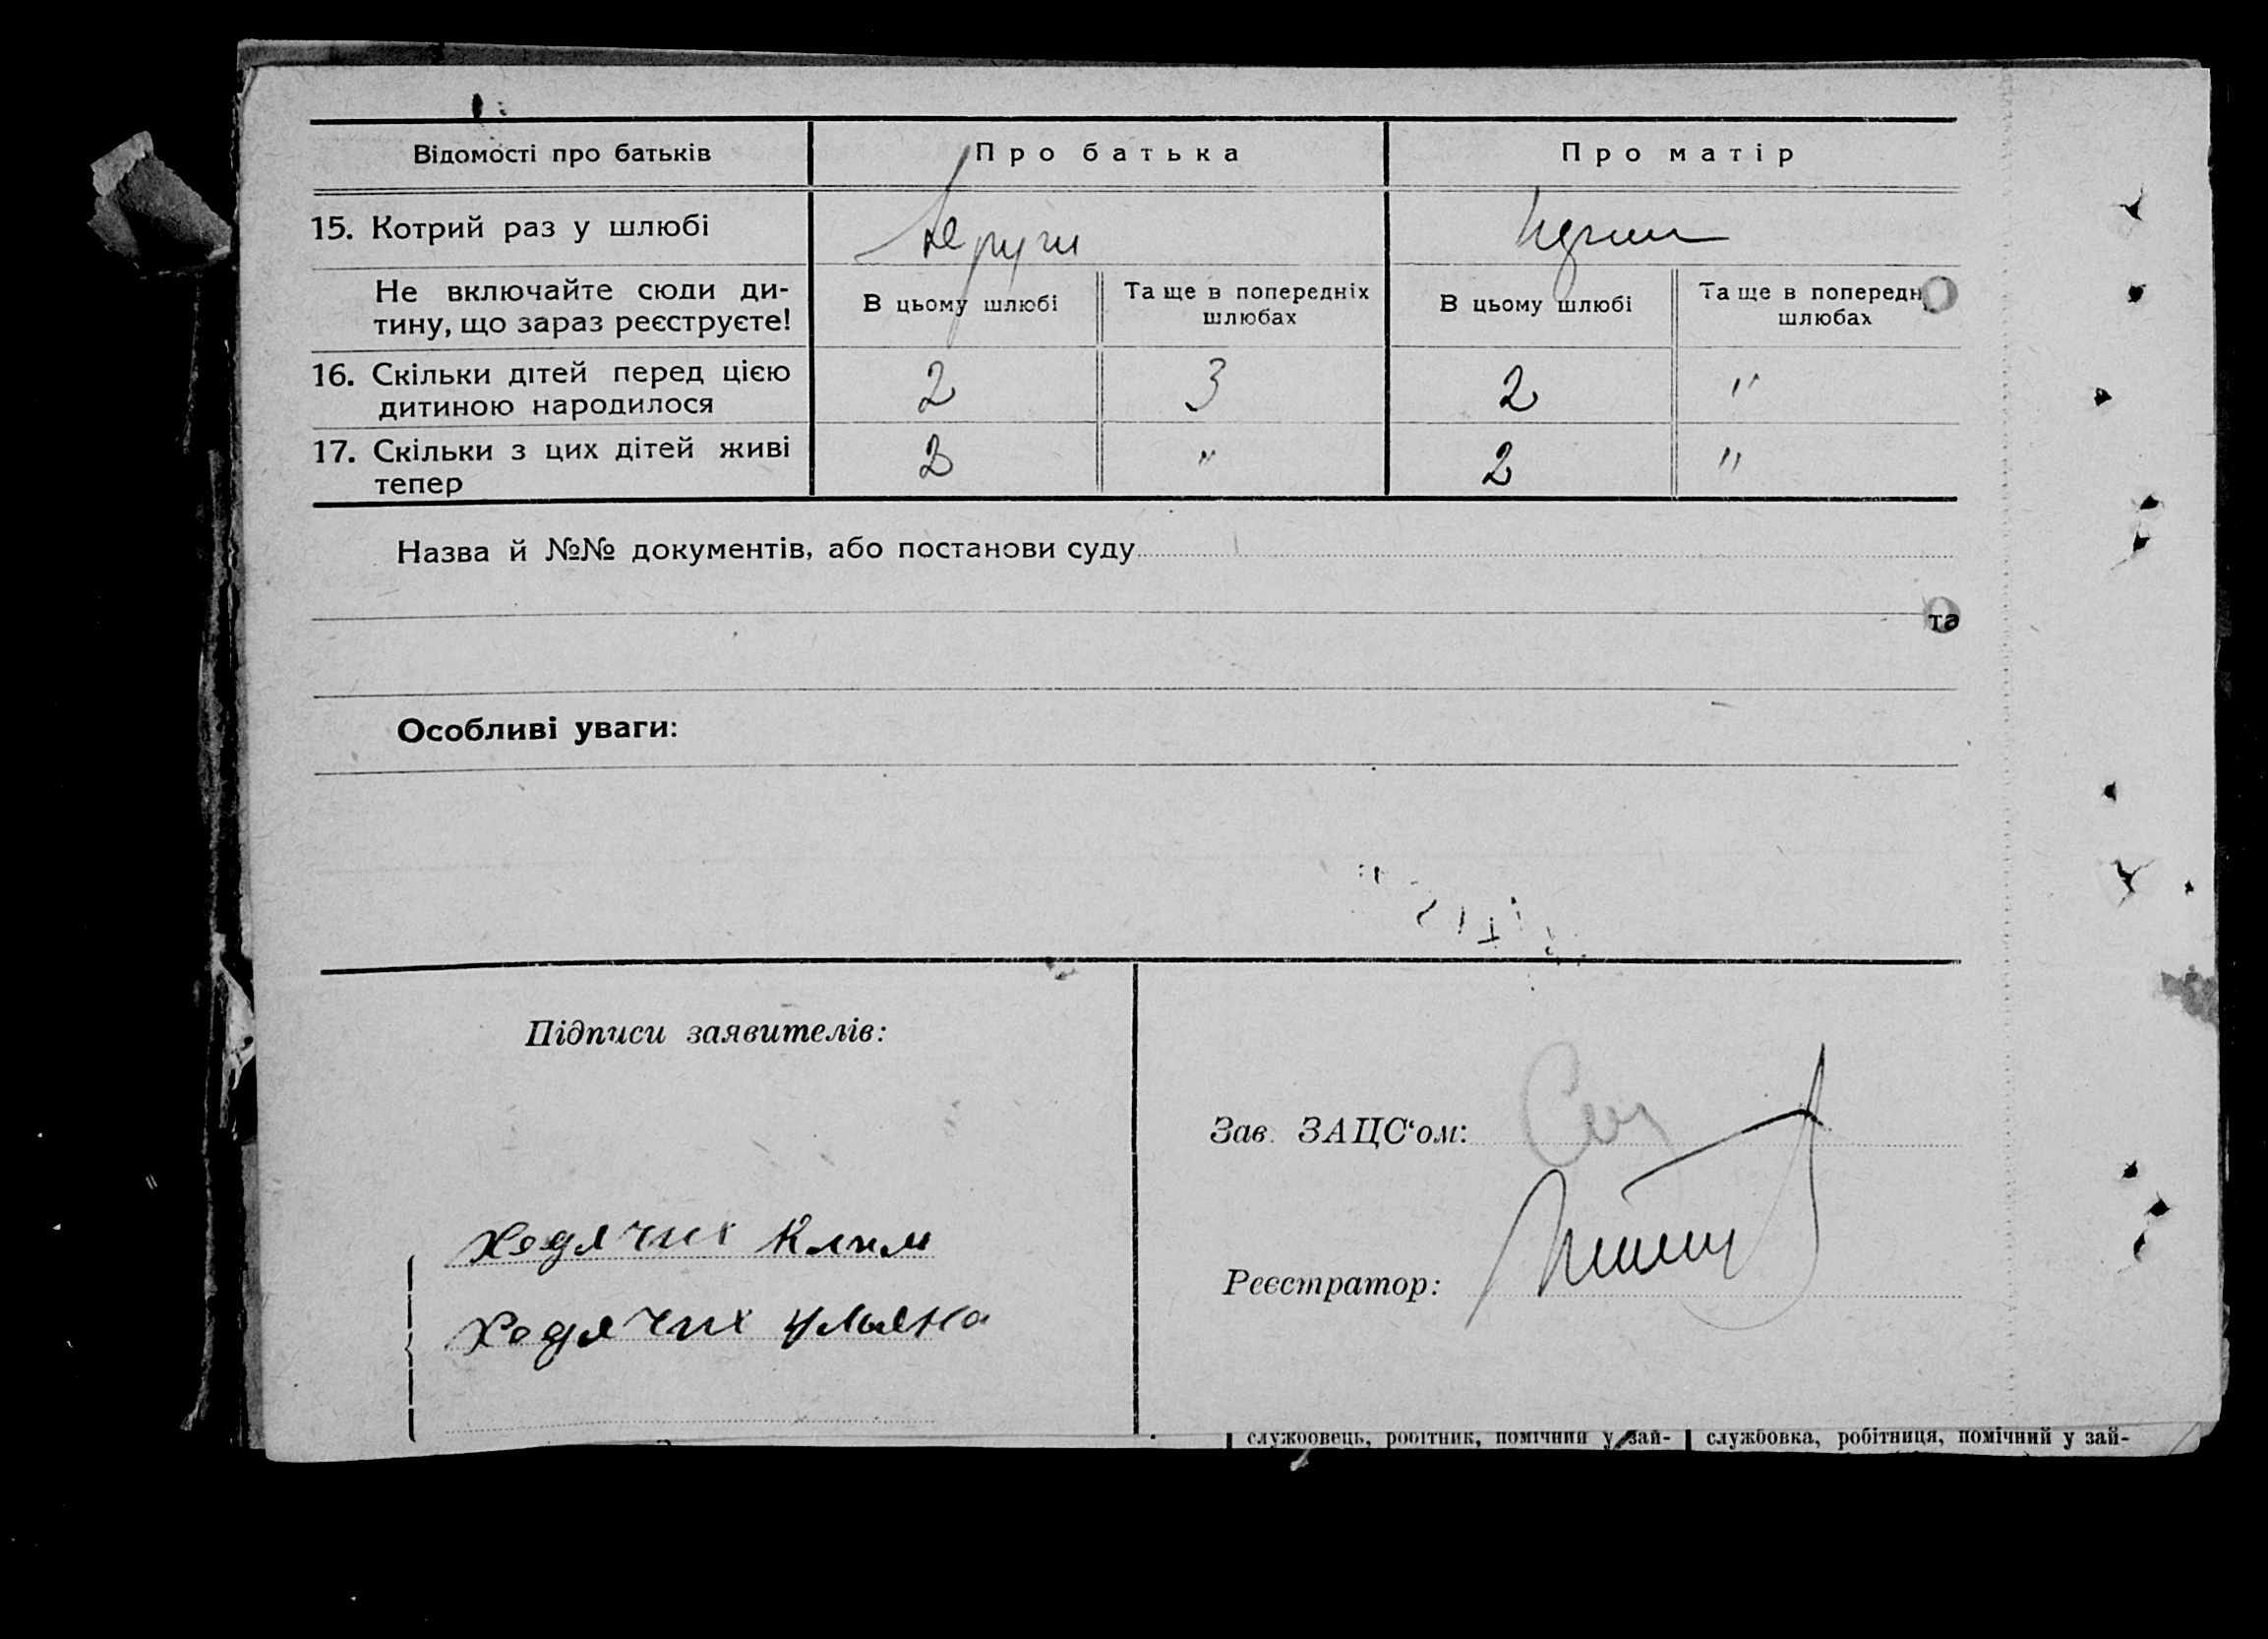 Відомості про батьків Про батька Про матір
15. Котрий раз у шлюбі други
Не включайте сюди ди- В цьому шлюбі Та ще в попередніх В цьому шлюбі Та ще в попередн
тину, що зараз реєструєте! шлюбах шлюбах
16. Скільки дітей перед цією 2 3 2 "
дитиною народилося
17. Скільки з цих дітей живі 2 " 2 "
тепер
Назва й №№ документів, або постанови суду
та
Особливі уваги:
Підписи заявителів:
Зав. ЗАЦС‘ом:
Ходячих Клим
Реєстратор:
Ходячих Ульяна
службовець, робітник, помічний у зай- службовка, робітниця, помічний у зай-